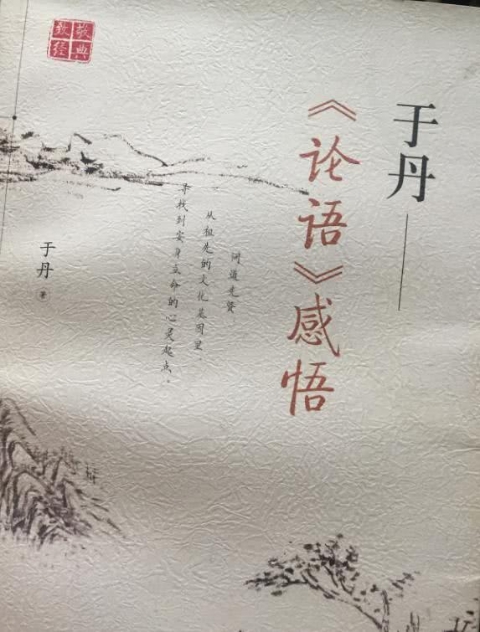 敬典
致经
于丹
《论语》感悟
问道先贤
从祖先的文化基因里，
寻找到安身立命的心灵起点。
于丹 著